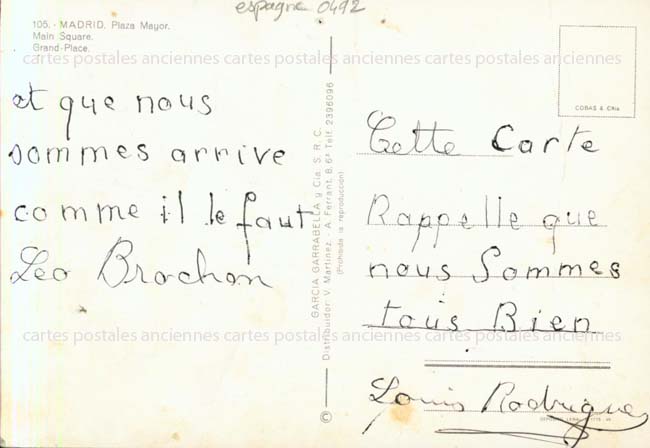 espagne 0492
105. - MADRID. Plaza Mayor.
Main Square.
Grand-Place.
cartes postales anciennes cartes postales anciennes cartes postales anciennes
et que nous
sommes arrive
comme il le faut
Leo Brochon
GARCIA GARRABELLA y Cia. S. R. C.
Distribuidor V. Martinez. - A. Ferrant, 8, 6ª Telf. 2396096
(Prohibida la reproducción)
©
COBAS & CRia
Cette Carte
Rappelle que
nous Sommes
tous Bien
cartes postales anciennes cartes postales anciennes cartes postales anciennes
Louis Rodrigues